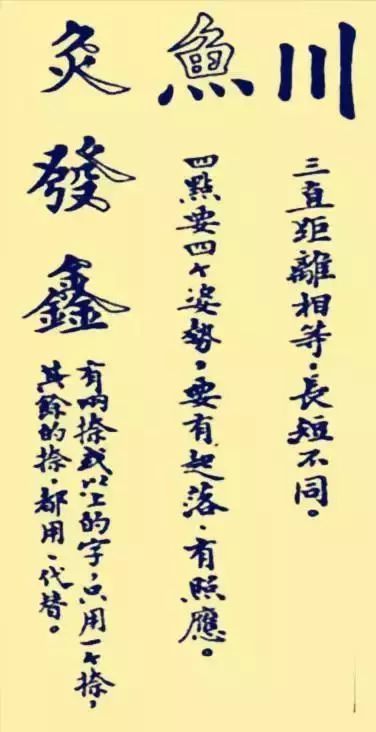 川
三直距離相等，長短不同。
魚
四點要四个姿勢，要有起落、有照應。
灸
發
鑫
有兩捺或以上的字，只用一个捺，
其餘的捺，都用丶代替。